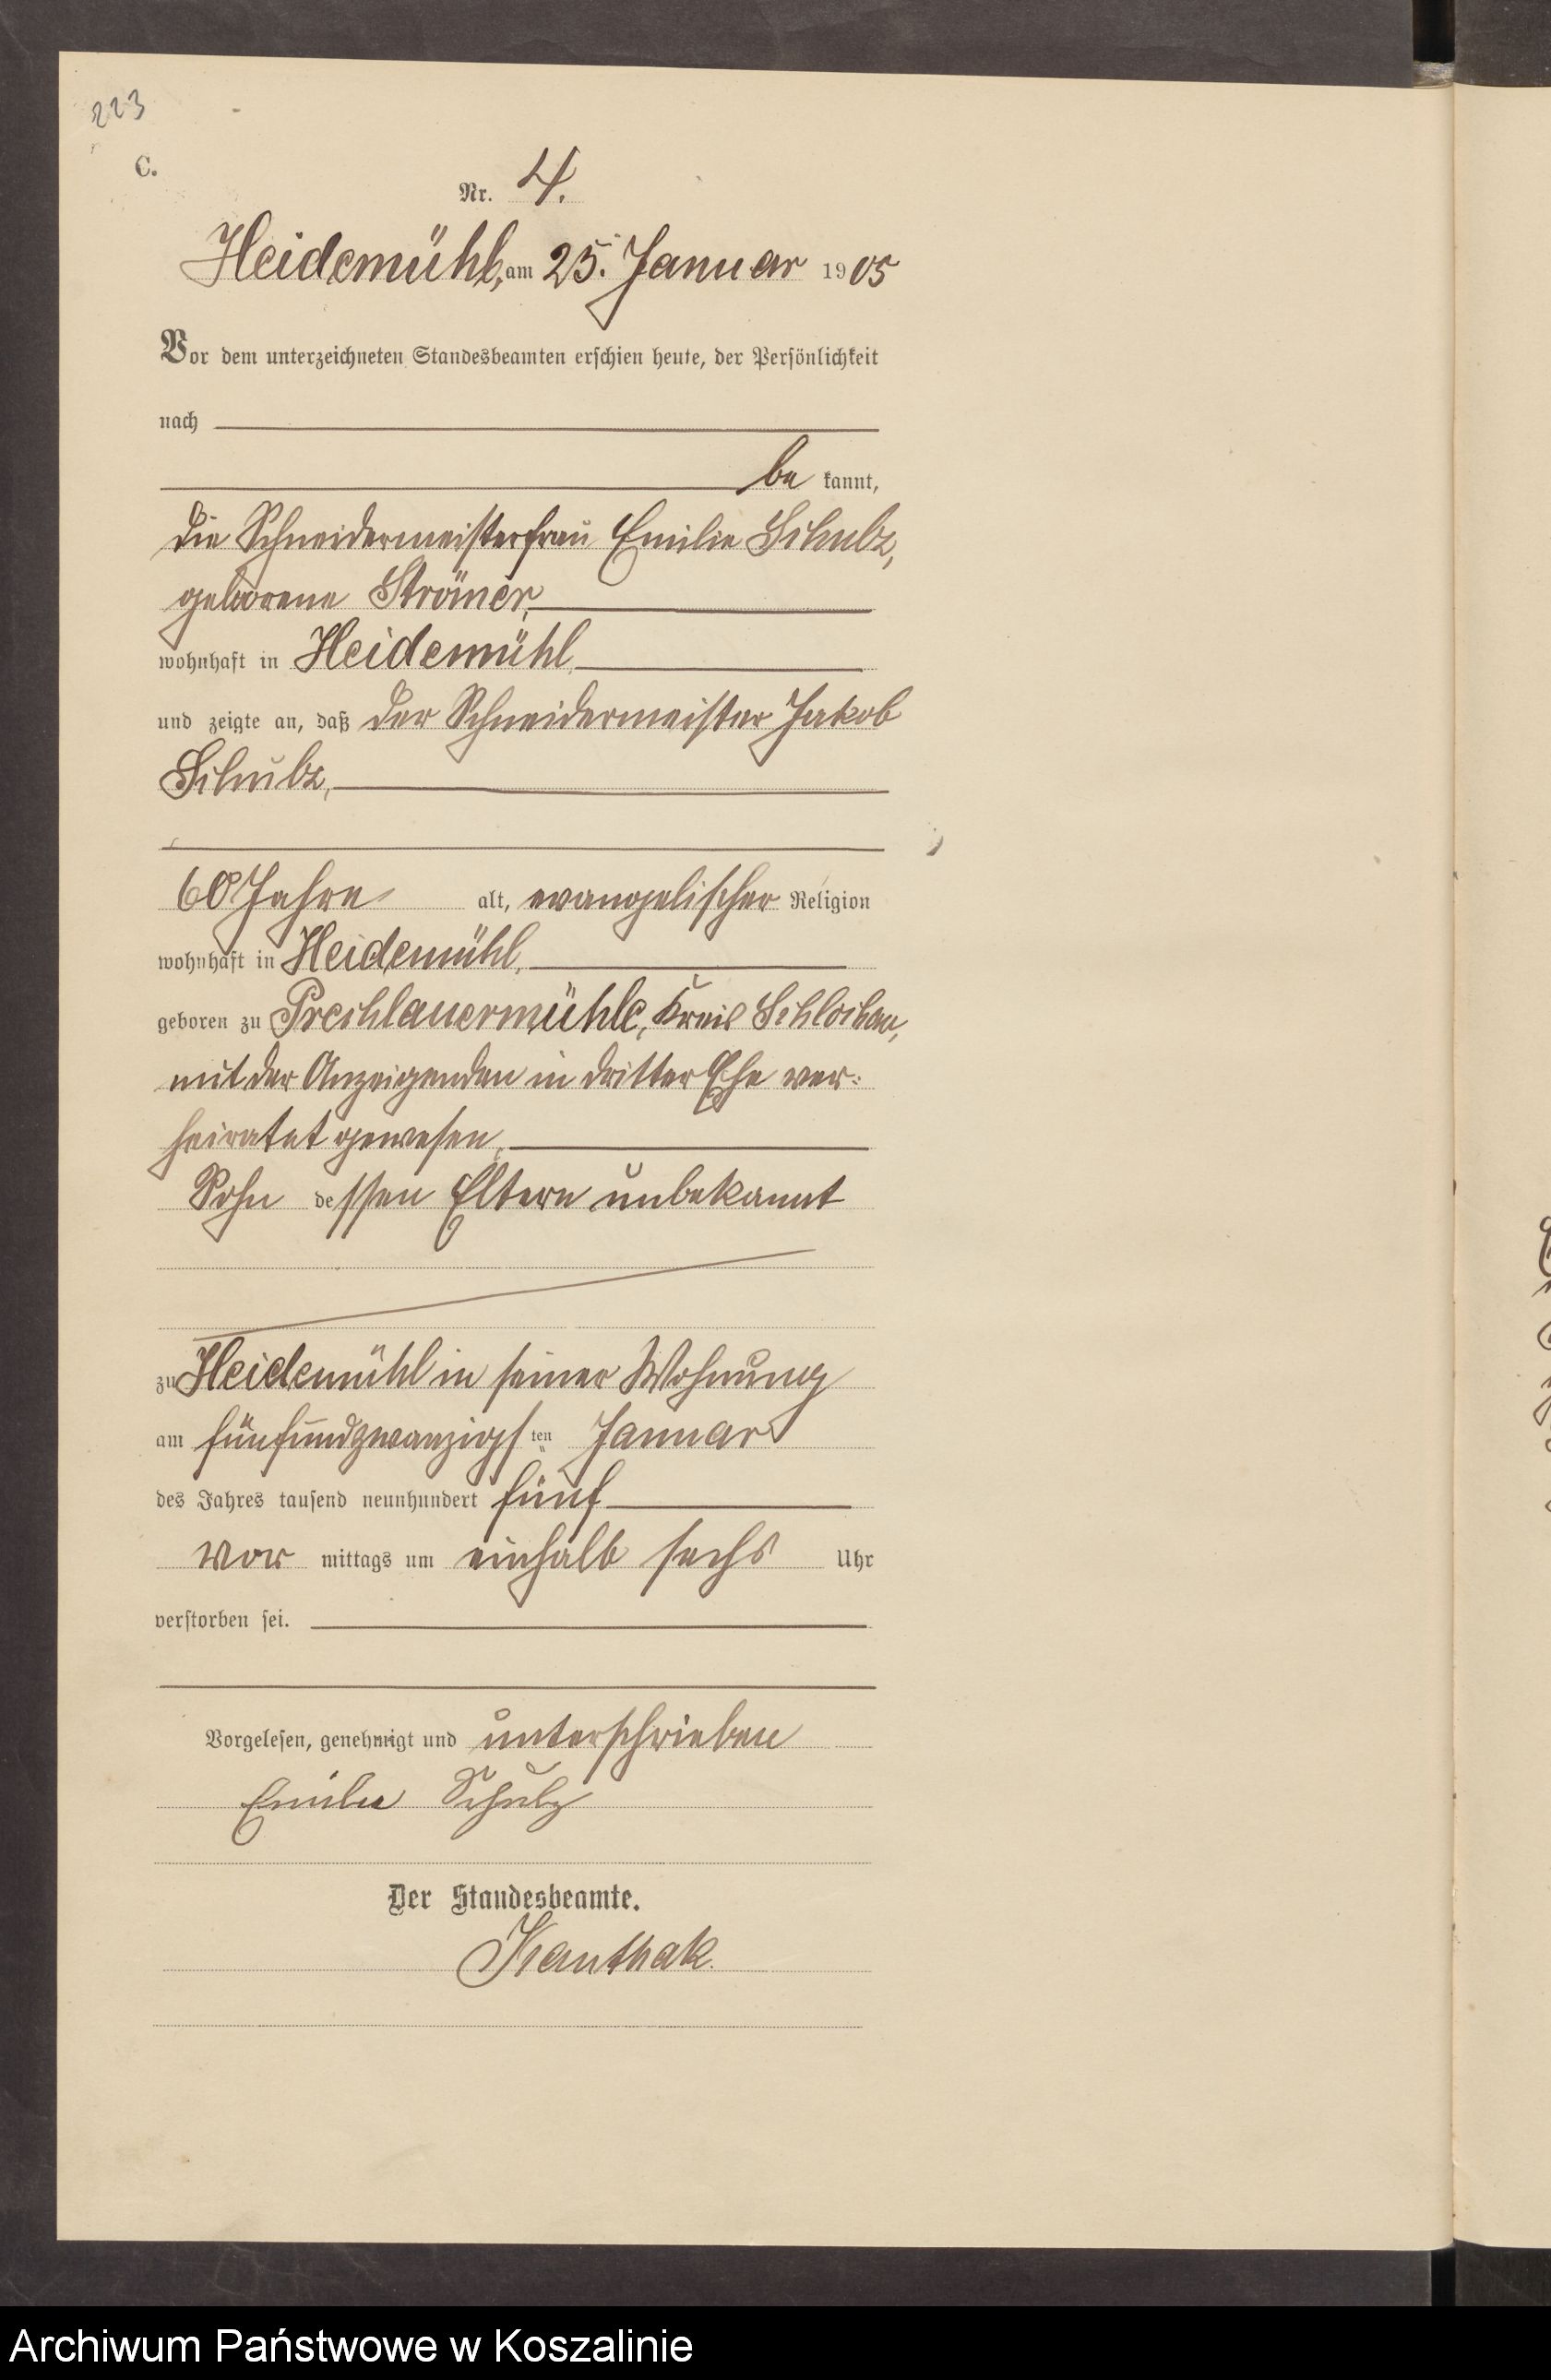 223
C.
Nr. 4.
Heidemühl, am 25. Januar 1905
Vor dem unterzeichneten Standesbeamten erschien heute, der Persönlichkeit
nach
be kannt,
die Schneidermeisterfrau Emilie Schulz,
geborene Strömer,
wohnhaft in Heidemühl
und zeigte an, daß der Schneidermeister Jakob
Schulz,
60 Jahre alt, evangelischer Religion
wohnhaft in Heidemühl,
geboren zu Prechlauermühle, Kreis Schlochau,
mit der Anzeigenden in dritter Ehe ver-
heiratet gewesen,
Sohn dessen Eltern unbekannt
zu Heidemühl in seiner Wohnung
am fünfundzwanzigsten Januar
des Jahres tausend neunhundert fünf
vor mittags um einhalb sechs Uhr
verstorben sei.
Vorgelesen, genehmigt und unterschrieben
Emilie Schulz
Der Standesbeamte.
Kanthak.
Archiwum Państwowe w Koszalinie